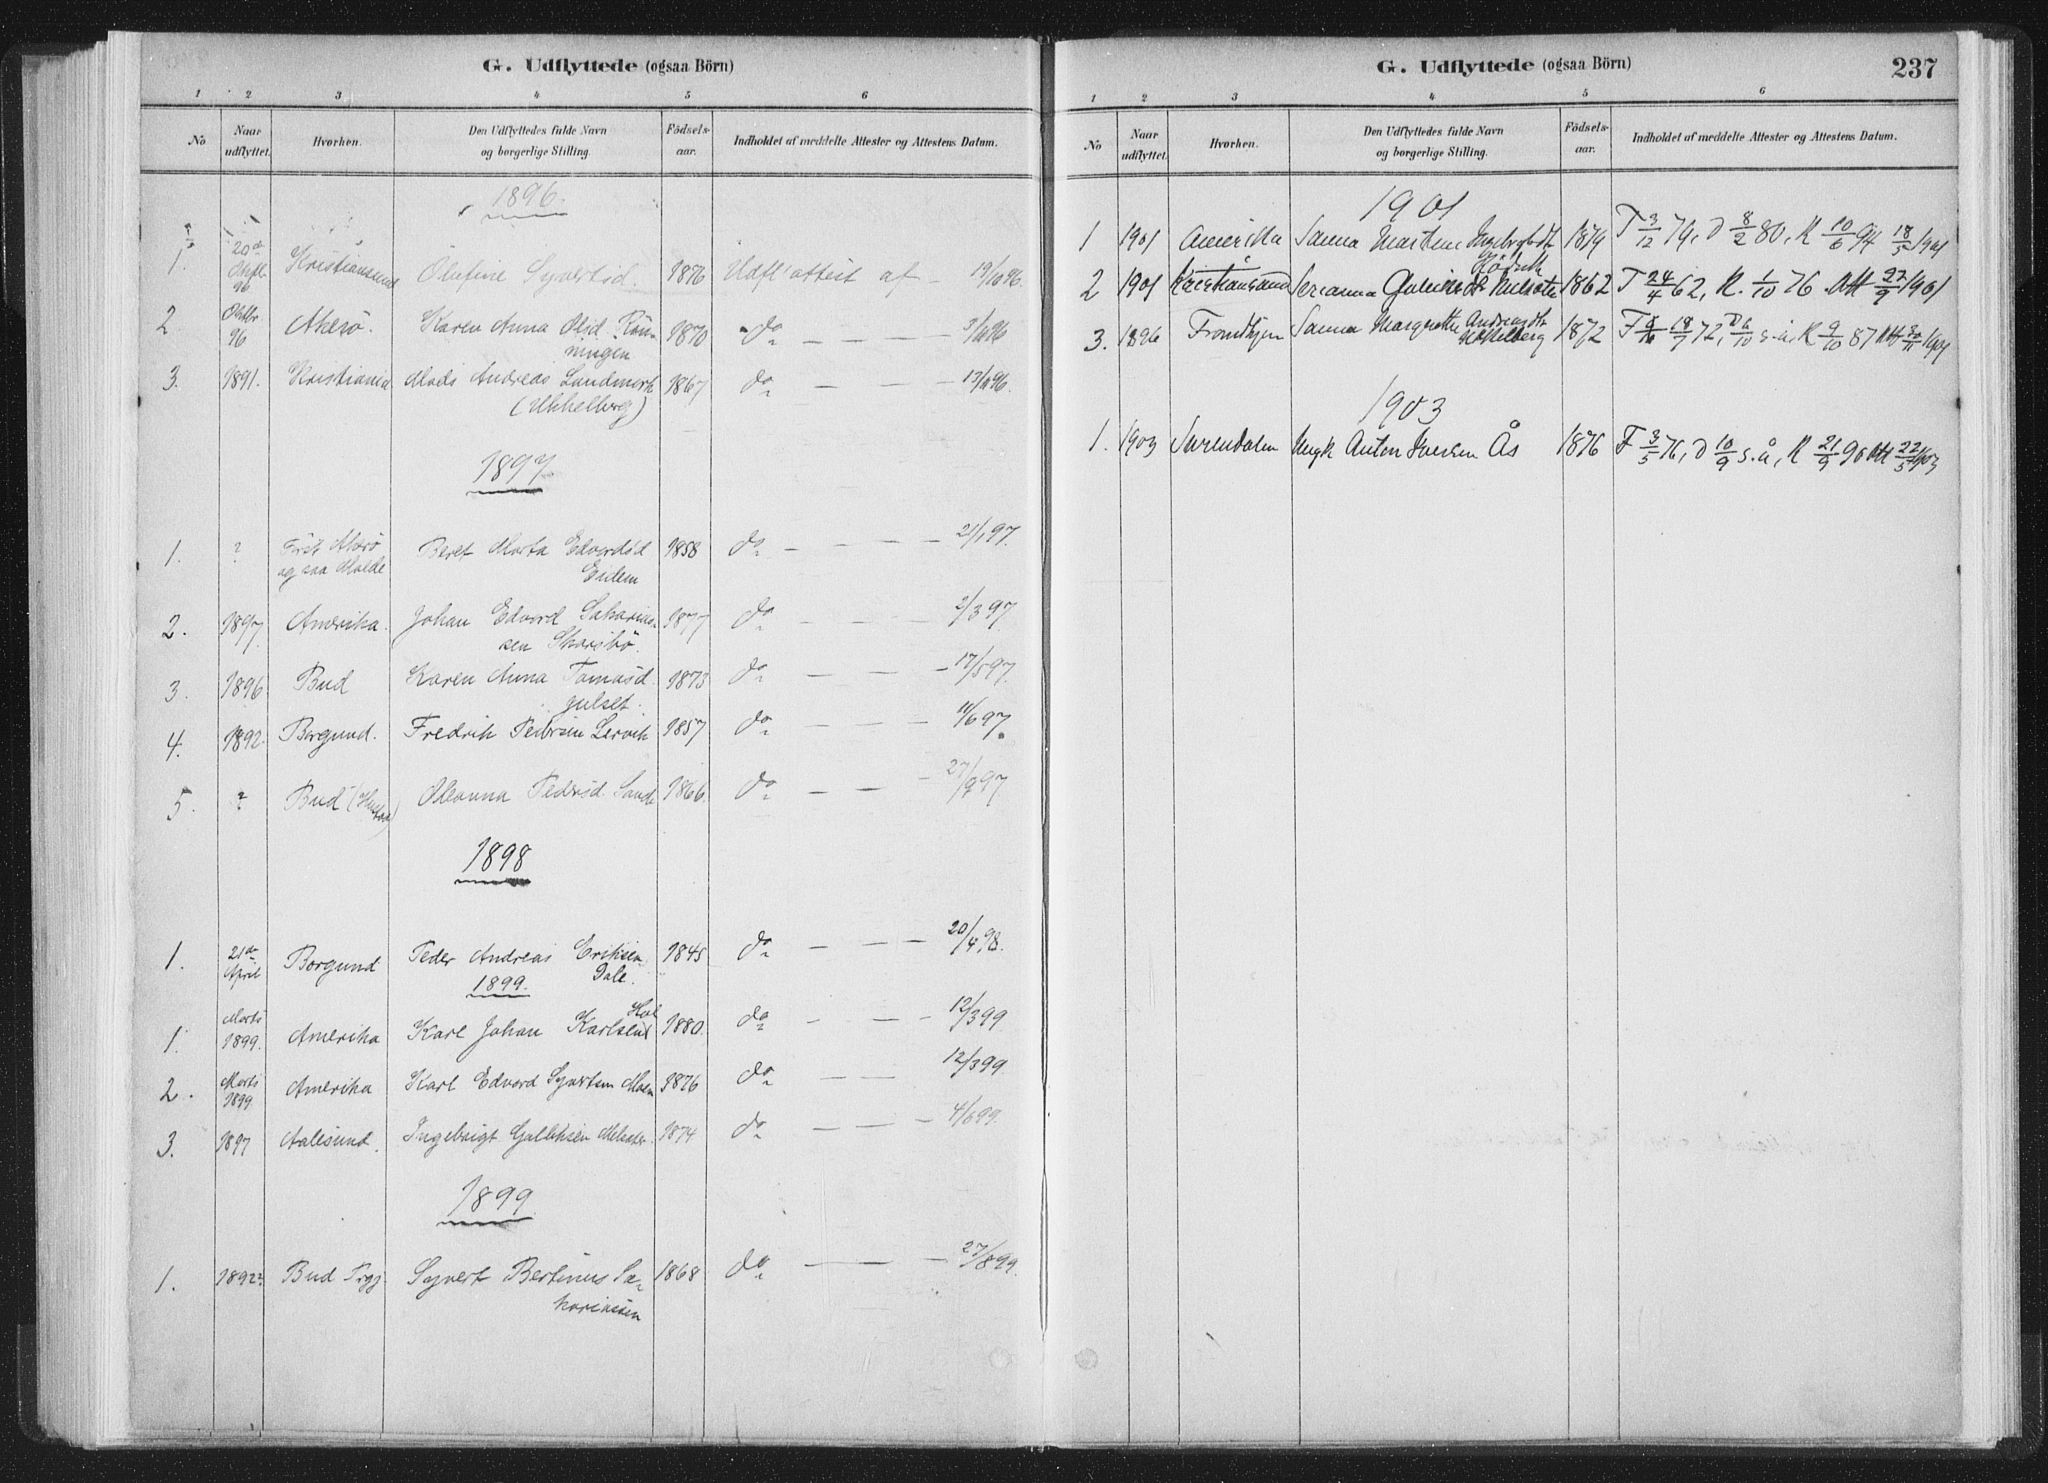 G. Udflyttede (ogsaa Börn)
1 2 3 4 5 6
No Naar udflyttet. Hvorhen. Den Udflyttedes fulde Navn og borgerlige Stilling. Födsels-aar. Indholdet af meddelte Attester og Attestens Datum.
1896.
1. 20de Oktbr 96 Kristiansund Olufine Syvertsd. 1876 Udfl. attest af - 19/10 96.
2. Oktbr. 96 Akerö. Karen Anna Olsd. Rön- 1870 do — — — —
ningen
3. 1891. Kristiania Mads Andreas Landmark 1867 do — — — —
(Ukkelberg)
1897
1. ? Först Akerö Beret Marta Edvardsd. 1858 do — — — — 21/1 97.
og saa Molde Eidem
2. 1897. Amerika. Johan Edvard Sakarias- 1877 do — — — 2/3 97
sen Skarsbö.
3. 1896 Bud Karen Anna Tomasd. 1873 do — — — 17/5 97.
Julset.
4. 1892. Borgund. Fredrik Pedersen Lervik 1857 do — — — 11/6 97.
5. ? Bud (Hustad) Oleanna Pedersd. Sande 1866. do — — — 27/9 97
1898
1. 21de April Borgund Peder Andreas Eriksen 1845 do — — — 20/4 98.
Dale.
1899.
1. Marts 1899. Amerika Karl Johan Karlsen Hol 1880. do — — 12/3 99
2. Marts 1899 Amerika Karl Edvard Syvertsen Moen 1876 do — — 12/3 99
3. 1897 Aalesund. Ingebrigt Gulliksen Melsæter. 1874. do — — — 4/6 99.
1899
1. 1892? Bud Prgj. Syvert Bertinus Sa- 1868 do — — — 27/8 99.
kariassen
G. Udflyttede (ogsaa Börn) 237
1 2 3 4 5 6
No Naar udflyttet. Hvorhen. Den Udflyttedes fulde Navn og borgerlige Stilling. Födsels-aar. Indholdet af meddelte Attester og Attestens Datum.
1901
1 1901 Amerika Sanna Martine Ingebrgtsdt 1879 F 3/12 79, D 8/2 80, K 10/6 94 18/5 1901
2 1901 Kristiansund Serianna 1862 F 24/4 62, K. 1/10 76 Att 27/9 1901
3. 1896 Trondhjem Sanna Margrethe Andreasdt. Ukkelberg 1872 F 18/7 72, D 6/10 s.å, K 9/10 87 Att
1903
1. 1903 Surendalen Ungk Anton Iversen Ås 1876 F 3/5 76, D 10/9 s.å, K 21/9 90 Att 22/5 1903